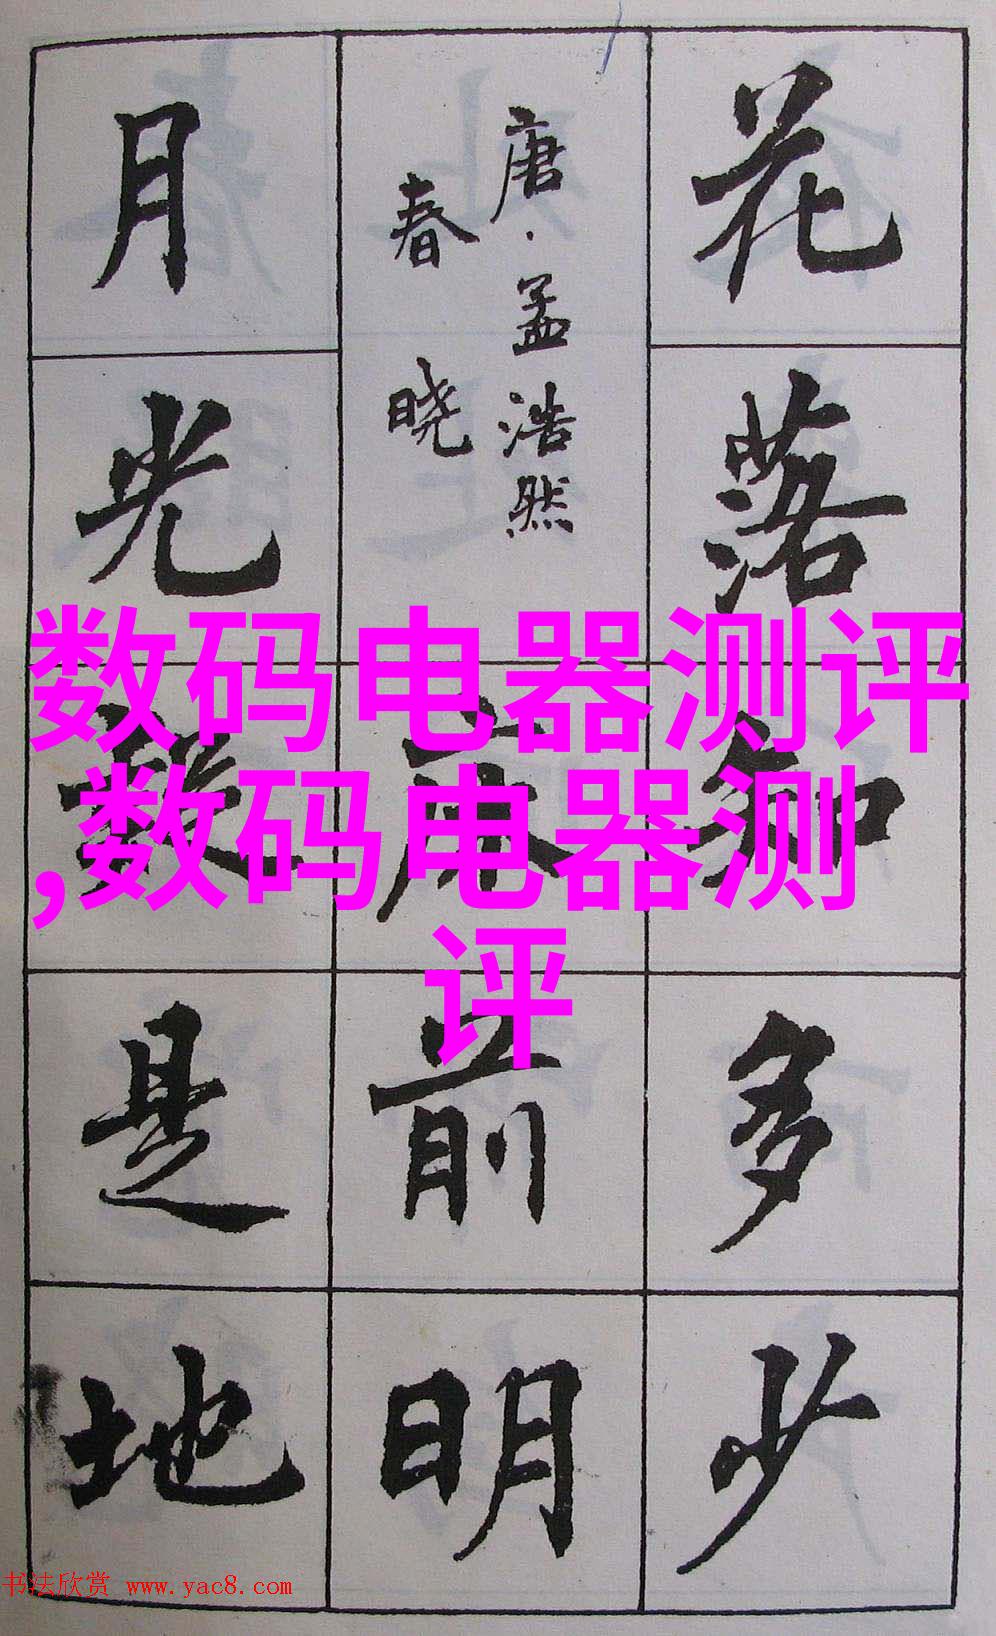 花落知多少
唐·孟浩然
春晓
床前明
月光疑是地
数码电器测评
,数码电器测
评
书法欣赏 www.yac8.com